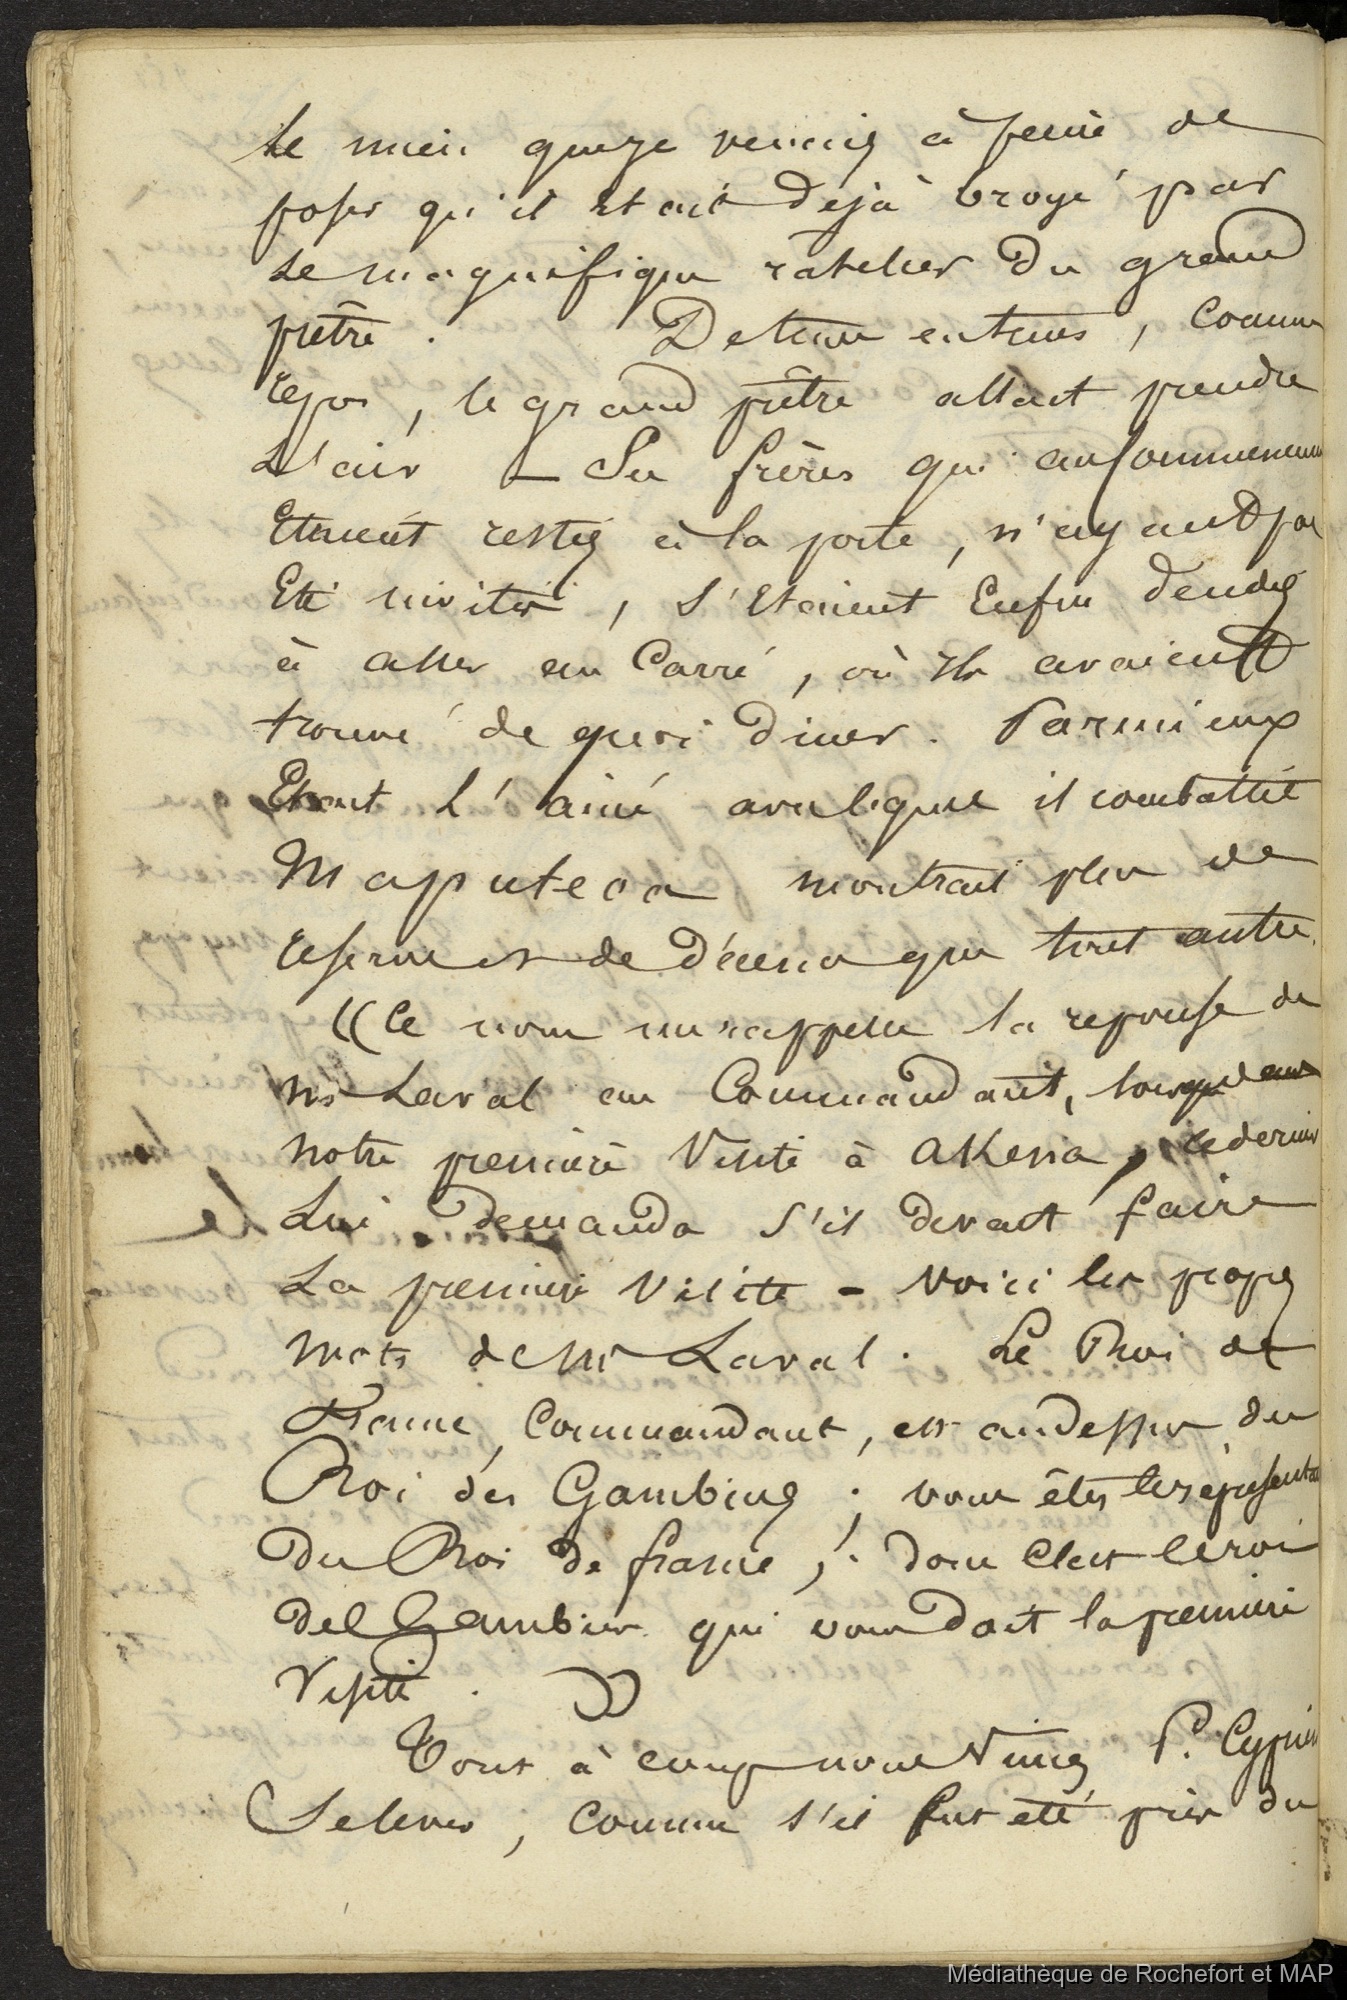 le mien que je venais à peine de
poser qu'il était déjà broyé par
le magnifique ratelier du grand
prêtre. De tems en tems, comme
repos, le grand prêtre allait prendre
L'air — Ses frères qui
Etaient restés à la porte, n'ayant pas
Eté invités, s'étaient Enfin
à aller au Carré, où ils avaient
trouvé de quoi diner. Parmi eux
Etait L'ainé avec lequel il combattit
Maputeoa montrait plus de
reserve et de décence que tout autre.
((Ce nom me rappelle la reponse de
Mr Laval au Commandant, lorsque
notre première Visite à Akena, ce dernier
Lui demanda s'il devait faire
La première visite - voici les propres
mots de Mr Laval. Le Roi de
France, Commandant, est au dessus du
Roi des Gambiers; vous êtes le représentant
du Roi de france; donc C'est le roi
des Gambier qui vous doit la première
Visite. ))
Tout à coup nous vimes P. Cyprien
Se lever, comme s'il fut été pris du
Médiathèque de Rochefort et MAP